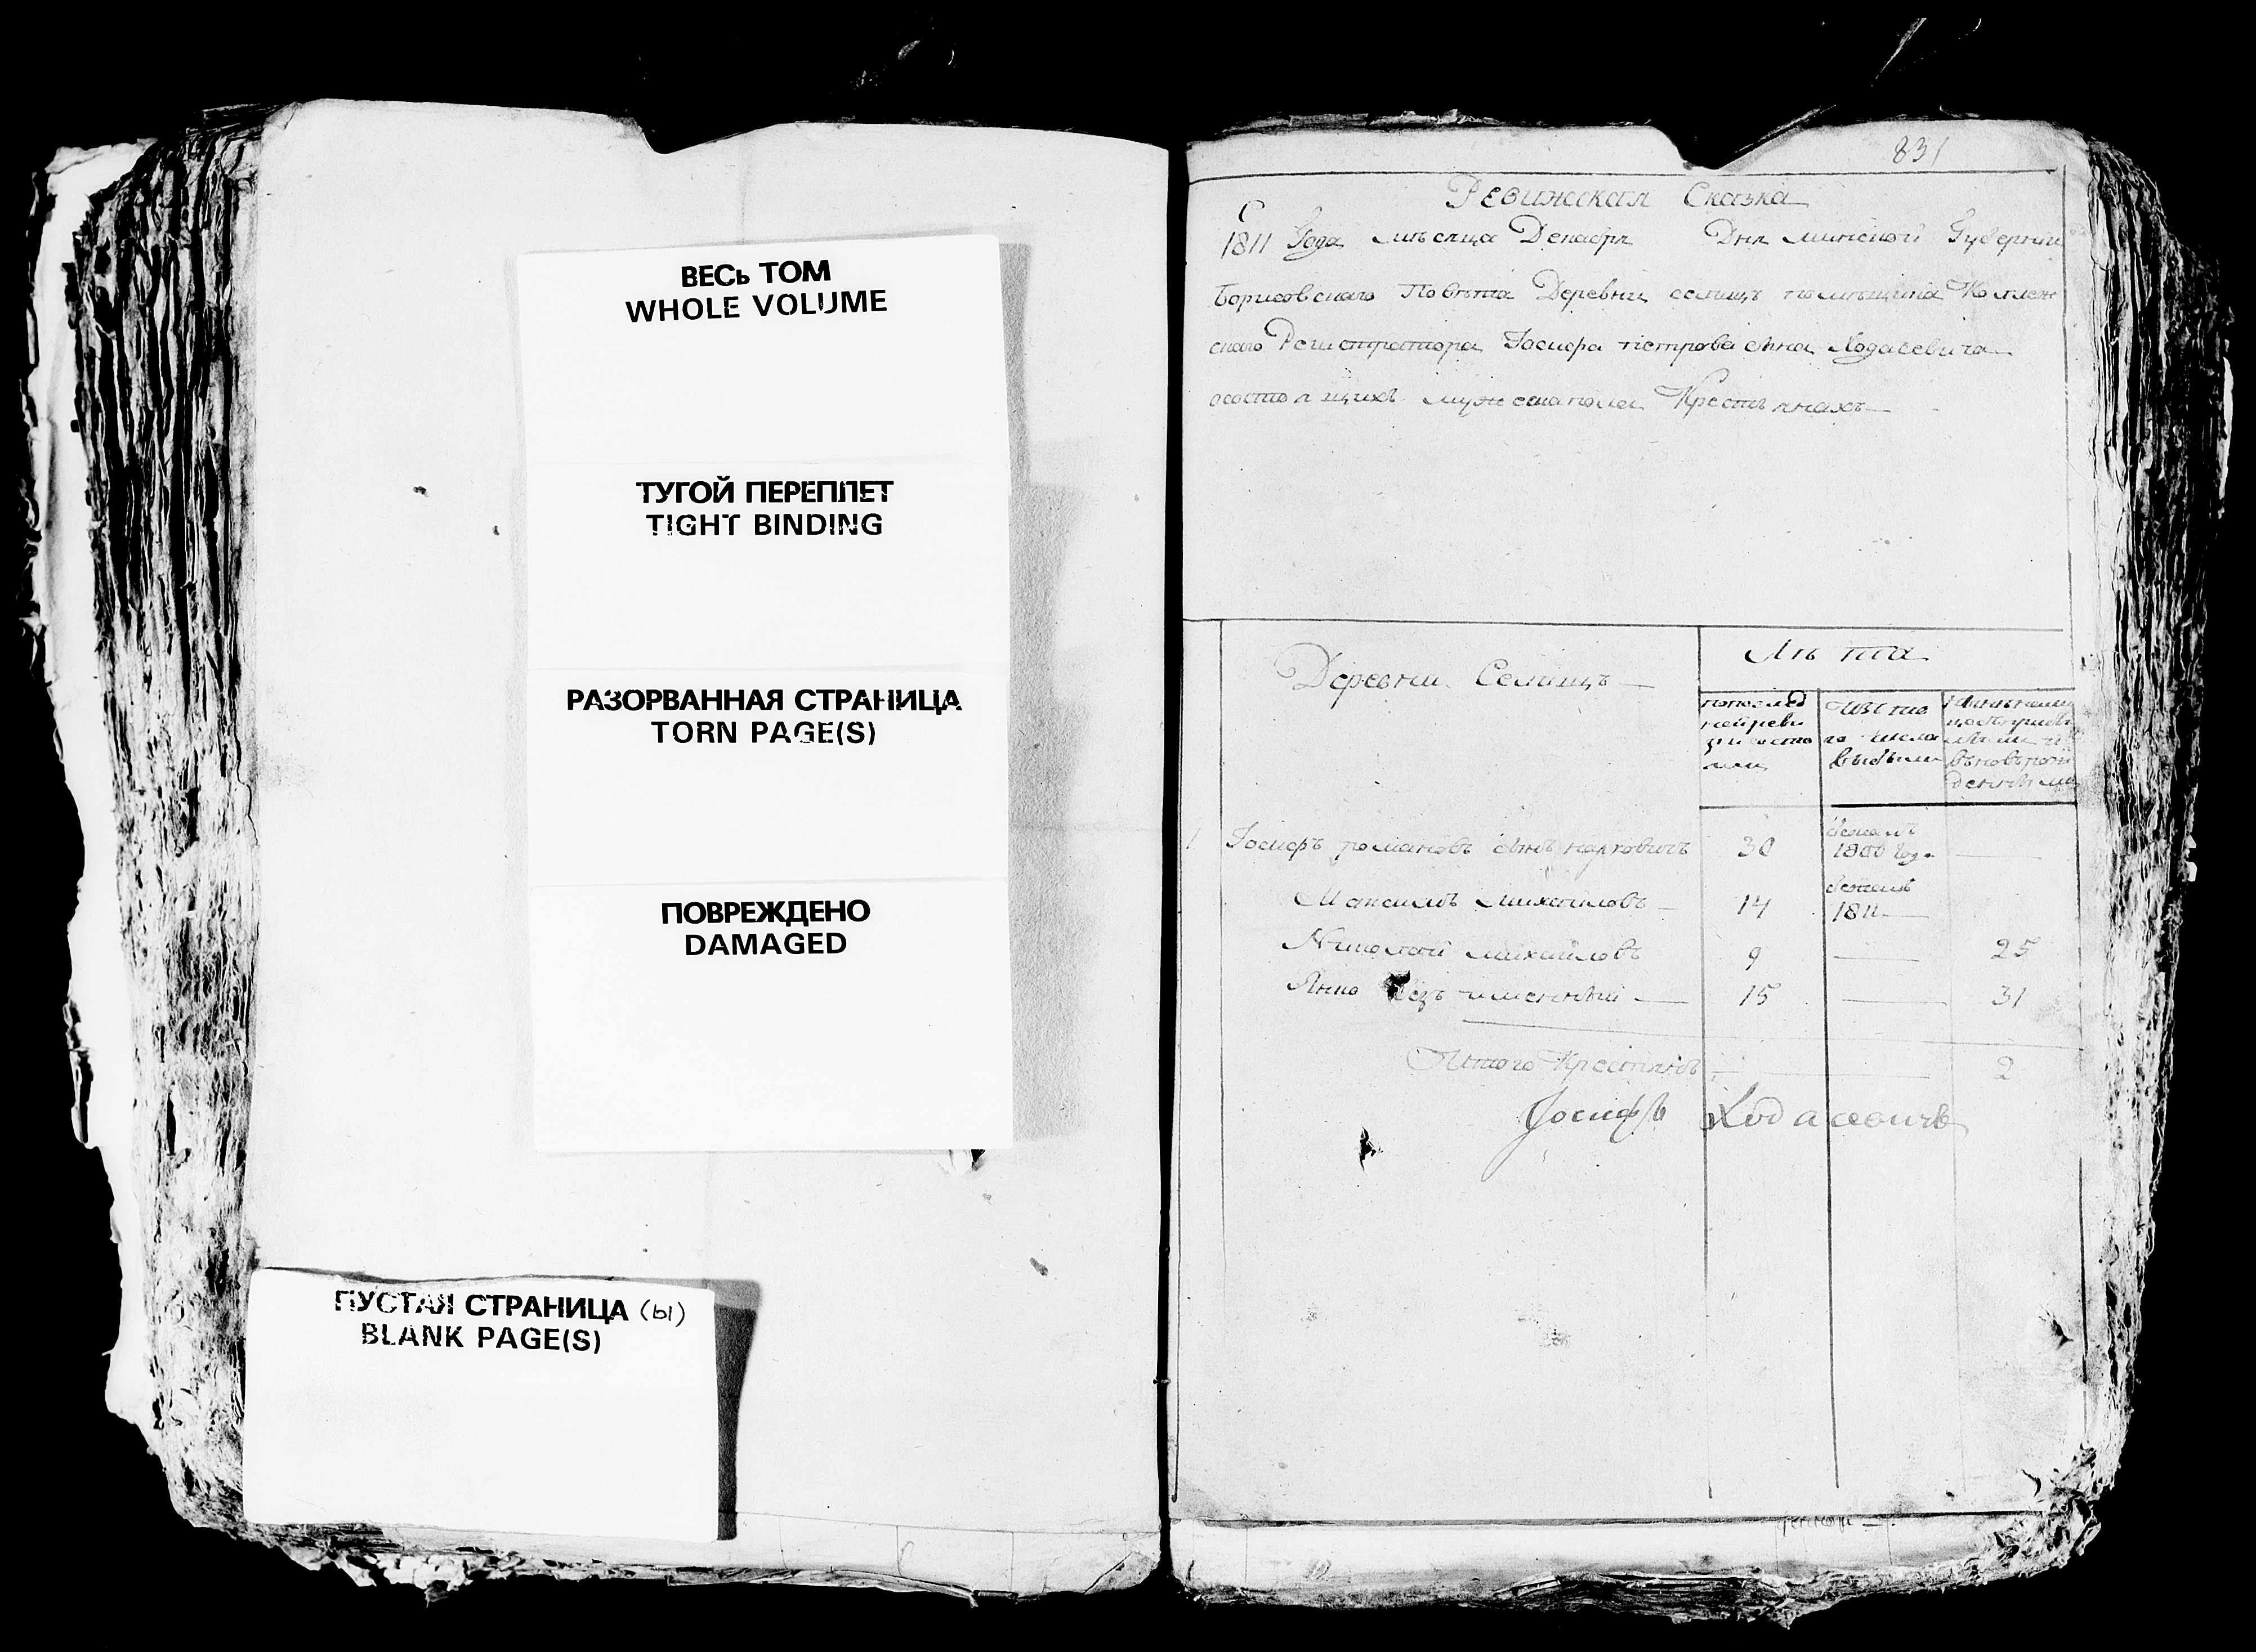 ВЕСЬ ТОМ
WHOLE VOLUME
ТУГОЙ ПЕРЕПЛЕТ
TIGHT BINDING
РАЗОРВАННАЯ СТРАНИЦА
TORN PAGE(S)
ПОВРЕЖДЕНО
DAMAGED
ПУСТАЯ СТРАНИЦА (ы)
BLANK PAGE(S)
831
Ревижская Сказка
1811 Года мѣсяца Декабря Дня минской Губернии
Борисовскаго Повѣта Деревни селищъ помѣщика Коллеж
скаго Регистратора Іосифа петрова сына Ходасевича
осостоящихъ мужескаполу Крестьянахъ
Деревни Селищъ
Лѣта
попослед
нейреви
зіи состо
яли
Изъ то
го числа
выбыли
1 Іосифъ романовъ сынъ 30 бежалъ 1800 года
Максимъ михайловъ 14 бежалъ 1811
Николай михайловъ 9 25
Янко Безъ именный 15 31
Итого Крестьянъ 2
Іосифъ Ходасевичъ